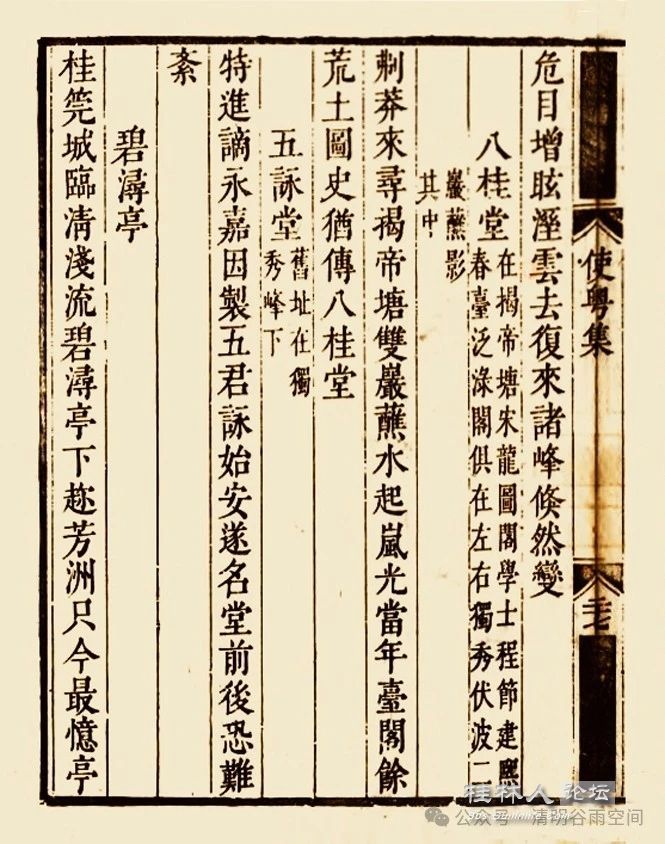 使粤集
危目增眩溼雲去復來諸峰倏然變
八桂堂
在揭帝塘宋龍圖閣學士程節建熈
春臺泛淥閣俱在左右獨秀伏波二
巖蘸影
其中
刜莽來尋揭帝塘雙巖蘸水起嵐光當年臺閣餘
荒土圖史猶傳八桂堂
五詠堂
舊址在獨
秀峰下
特進謫永嘉因製五君詠始安遂名堂前後恐難
紊
碧潯亭
桂筦城臨清淺流碧潯亭下趂芳洲只今最憶亭
桂林人论坛
公众号·清明谷雨空间